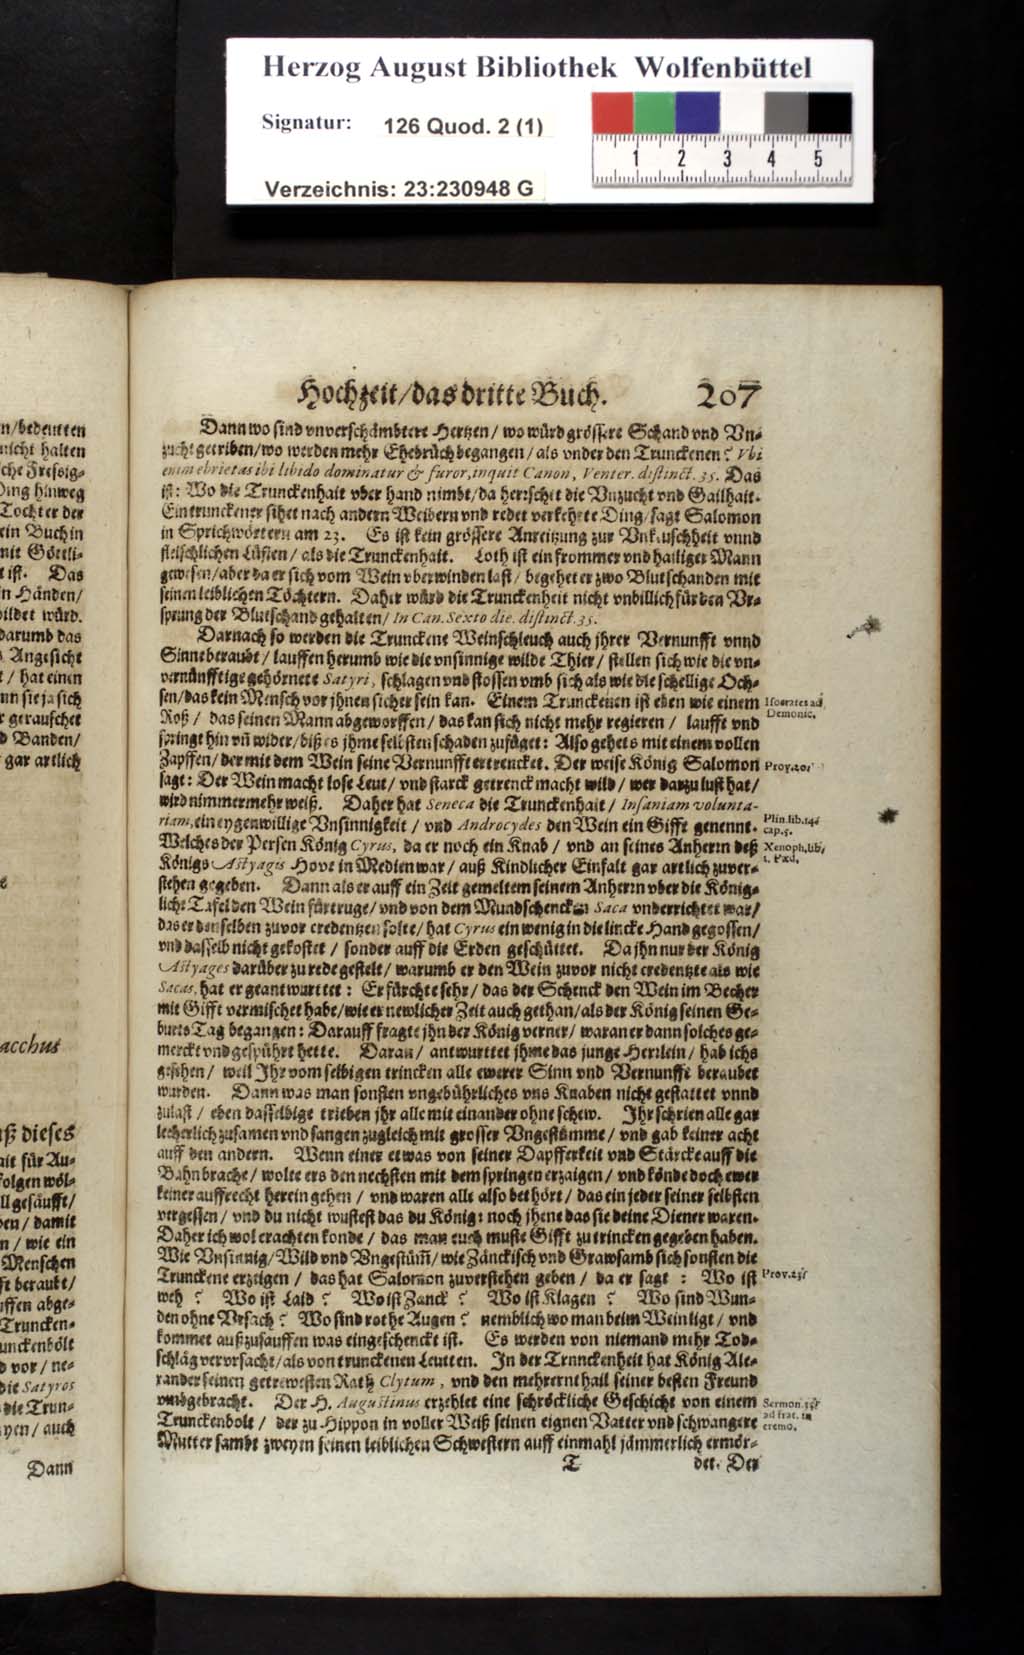 Herzog August Bibliothek Wolfenbüttel
Signatur: 126 Quod. 2 (1)
1 2 3 4 5
Verzeichnis: 23:230948 G
Hochzeit/das dritte Buch. 207
Dann wo sind vnverschämbtere Hertzen / wo würd grössere Schand vnd Vn-
zucht getriben/wo werden mehr Ehebrüch begangen / als vnder den Trunckenen? Vbi
enim ebrietas ibi libido dominatur & furor, inquit Canon, Venter. distinct. 35. Das
ist: Wo die Trunckenhait vber hand nimbt/da herrschet die Vnzucht vnd Gailhait.
Ein trunckener sihet nach andern Weibern vnd redet verkehrte Ding/sagt Salomon
in Sprichwörtern am 23. Es ist kein grössere Anreitzung zur Vnkeuschheit vnnd
fleischlichen Lüsten / als die Trunckenhait. Loth ist ein frommer vnd hailiger Mann
gewesen/aber da er sich vom Wein vberwinden last / begehet er zwo Blutschanden mit
seinen leiblichen Töchtern. Daher würd die Trunckenheit nicht vnbillich für den Vr-
sprung der Blutschand gehalten/ In Can. Sexto die. distinct. 35.
Darnach so werden die Trunckene Weinschleuch auch jhrer Vernunfft vnnd
Sinne beraubt / lauffen herumb wie die vnsinnige wilde Thier / stellen sich wie die vn-
vernünfftige gehörnete Satyri, schlagen vnd stossen vmb sich als wie die schellige Och-
sen/das kein Mensch vor jhnen sicher sein kan. Einem Trunckenen ist eben wie einem
Roß / das seinen Mann abgeworffen / das kan sich nicht mehr regieren / laufft vnd
springt hin vñ wider/biß es jhme selbsten schaden zufüget: Also gehets mit einem vollen
Zapffen/der mit dem Wein seine Vernunfft ertrencket. Der weise König Salomon
sagt: Der Wein macht lose Leut/ vnd starck getrenck macht wild/ wer darzu lust hat/
wird nimmermehr weiß. Daher hat Seneca die Trunckenhait / Insaniam volunta-
riam, ein eygenwillige Vnsinnigkeit / vnd Androcydes den Wein ein Gifft genennt.
Welches der Persen König Cyrus, da er noch ein Knab / vnd an seines Anherrn deß
Königs Astyagis Hove in Medien war/ auß Kindlicher Einfalt gar artlich zuver-
stehen gegeben. Dann als er auff ein Zeit gemeltem seinem Anherrn vber die König-
liche Tafel den Wein fürtruge/ vnd von dem Mundschencken Saca vnderrichtet war/
das er denselben zuvor credentzen solte/ hat Cyrus ein wenig in die lincke Hand gegossen/
vnd dasselb nicht gekostet / sonder auff die Erden geschüttet. Da jhn nur der König
Astyages darüber zu rede gestelt/ warumb er den Wein zuvor nicht credentzte als wie
Sacas, hat er geantwurttet: Er fürchte sehr / das der Schenck den Wein im Becher
mit Gifft vermischet habe/wie er newlicher Zeit auch gethan/als der König seinen Ge-
burts Tag begangen: Darauff fragte jhn der König verner/ waran er dann solches ge-
merckt vnd gespührt hette. Daran / antwurttet jhme das junge Herrlein/ hab ichs
gesehen/ weil Jhr vom selbigen trincken alle ewerer Sinn vnd Vernunfft beraubet
wurden. Dann was man sonsten vngebührliches vns Knaben nicht gestattet vnnd
zulast / eben dasselbige trieben jhr alle mit einander ohne schew. Jhr schrien alle gar
lecherlich zusamen vnd sangen zugleich mit grosser Vngestümme / vnd gab keiner acht
auff den andern. Wenn einer etwas von seiner Dapfferkeit vnd Stärcke auff die
Bahn brachte/ wolte ers den nechsten mit dem springen erzaigen/ vnd könde doch ewer
keiner auffrecht herein gehen / vnd waren alle also bethört / das ein jeder seiner selbsten
vergessen / vnd du nicht wustest das du König: noch jhene das sie deine Diener waren.
Daher ich wol erachten konde / das man euch muste Gifft zu trincken gegeben haben.
Wie Vnsinnig/Wild vnd Vngestüm̃/ wie Zänckisch vnd Grawsamb sich sonsten die
Trunckene erzeigen / das hat Salomon zuverstehen geben / da er sagt : Wo ist
weh ? Wo ist Laid ? Wo ist Zanck ? Wo ist Klagen ? Wo sind Wun-
den ohne Vrsach ? Wo sind rothe Augen ? nemblich wo man beim Wein ligt / vnd
kommet außzusauffen was eingeschenckt ist. Es werden von niemand mehr Tod-
schläg vervrsacht/als von trunckenen Leutten. In der Trnnckenheit hat König Ale-
xander seinen getrewesten Rath Clytum, vnd den mehrern thail seiner besten Freund
vmbgebracht. Der H. Augustinus erzehlet eine schröckliche Geschicht von einem
Trunckenbolt / der zu Hippon in voller Weiß seinen eignen Vatter vnd schwangere
Mutter sambt zweyen seinen leiblichen Schwestern auff einmahl jämmerlich ermör-
T det. Der
Isocrates ad
Demonic.
Prov. 20.
Plin. lib. 14.
cap. 5.
Xenoph. lib.
1. Pæd.
Prov. 23.
Sermon. 33.
ad frat. in
eremo.
n/bedeutten
nicht halten
che Fresig-
Ding hinweg
Tochter der
ein Buch in
mit Göttli-
t ist. Das
n Händen/
bildet würd.
darumb das
s Angesicht
t / hat einen
nn sie ja sich
r gerauschet
d Banden/
gar artlich
acchus
uß dieses
ait für Au-
folgen wöl-
ll gesäufft/
ben/ damit
n / wie ein
Menschen
ft beraubt/
uffen abge-
Truncken-
unckenbölt
d vor / ne-
die Satyros
die Trun-
yen / auch
Dann